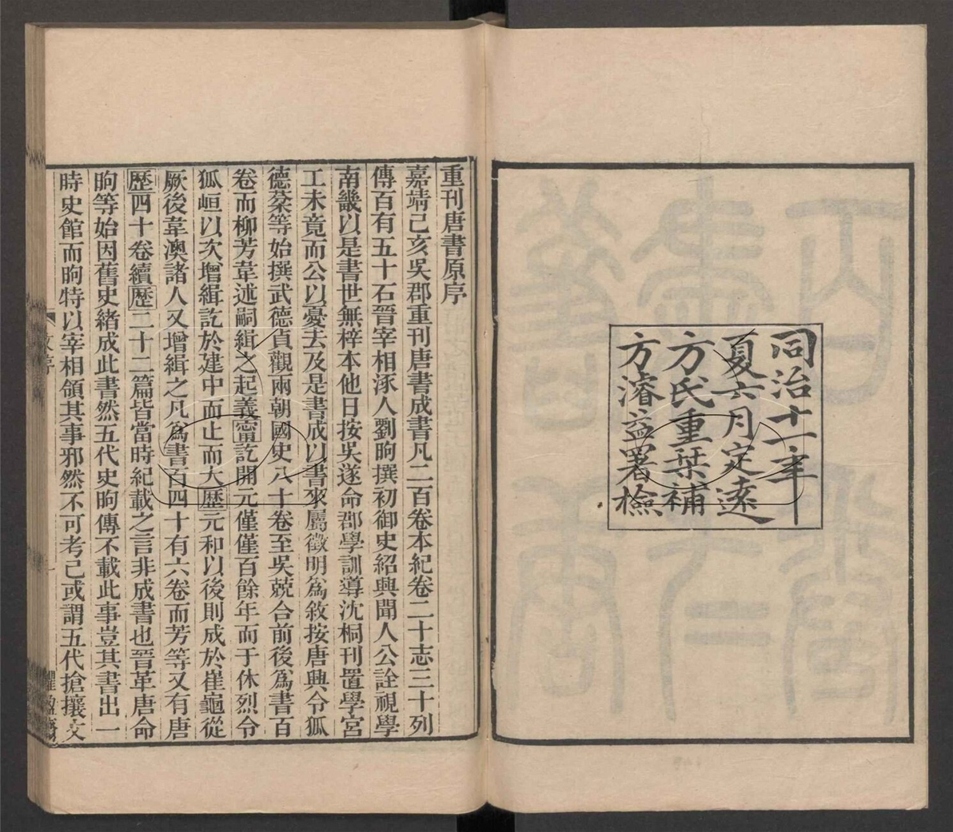 同治十一年
夏六月定遠
方氏重栞補
方濬益署檢
重刊唐書原序
嘉靖己亥吳郡重刊唐書成書凡二百卷本紀卷二十志三十列
傳百有五十石晉宰相涿人劉昫撰初御史紹興聞人公詮視學
南畿以是書世無梓本他日按吳遂命郡學訓導沈桐刊置學宮
工未竟而公以憂去及是書成以書來屬徵明爲敘按唐興令狐
德棻等始撰武德貞觀兩朝國史八十卷至吳兢合前後爲書百
卷而柳芳韋述嗣緝之起義寧訖開元僅僅百餘年而于休烈令
狐峘以次增緝訖於建中而止而大歷元和以後則成於崔龜從
厥後韋澳諸人又增緝之凡爲書百四十有六卷而芳等又有唐
歷四十卷續歷二十二篇皆當時紀載之言非成書也晉革唐命
昫等始因舊史緒成此書然五代史昫傳不載此事豈其書出一
時史館而昫特以宰相領其事邪然不可考已或謂五代搶攘文
文序
一
懼盈齋